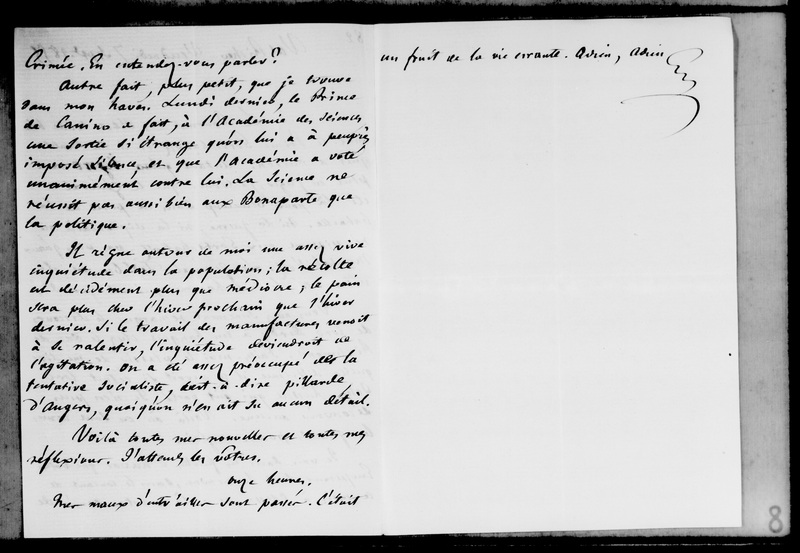 Crimée. En entendez-vous parler ?
Autre fait, plus petit, que je trouve
dans mon havas. Lundi dernier, le Prince
de Canino a fait, à l'Académie des sciences
une sortie si étrange qu'on lui a à peu près
imposé silence, et que l'Académie a voté
unanimément contre lui. La science ne
réussit pas aussi bien aux Bonaparte que
la politique.
Il règne autour de moi une assez vive
inquiétude dans la population ; la récolte
est décidément plus que médiocre ; le pain
sera plus cher l'hiver prochain que l'hiver
dernier. Si le travail des manufactures venoit
à se ralentir, l'inquiétude deviendroit de
l'agitation. On a été assez préoccupé de la
tentative socialiste, c'est-à-dire pillarde,
d'Angers, quoiqu'on n'en ait su aucun détail.
Voilà toutes mes nouvelles et toutes mes
réflexions. J'attends les vôtres.
onze heures.
Mes maux d'entrailles sont passés. C'étoit
un fruit de la vie errante. Adieu, Adieu
8